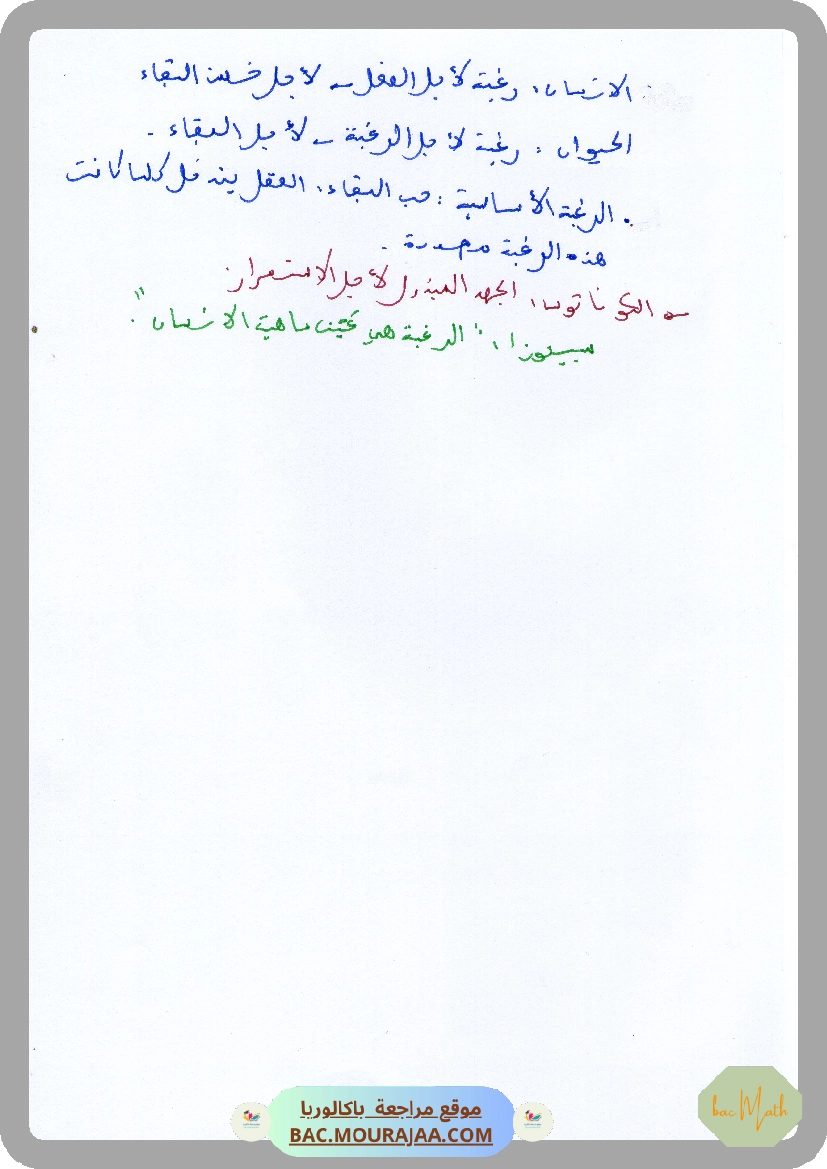 الانسان: رغبة لأجل العقل → لأجل حسن البقاء
الحيوان: رغبة لأجل الرغبة → لأجل البقاء.
. الرغبة الأساسية: حب البقاء، العقل يتدخل كلما كانت
هذه الرغبة مهددة.
→ الكوناتوس: الجهد المبذول لأجل الاستمرار.
سبينوزا: "الرغبة هي عين ماهية الانسان".
موقع مراجعة باكالوريا
BAC.MOURAJAA.COM
bac Math